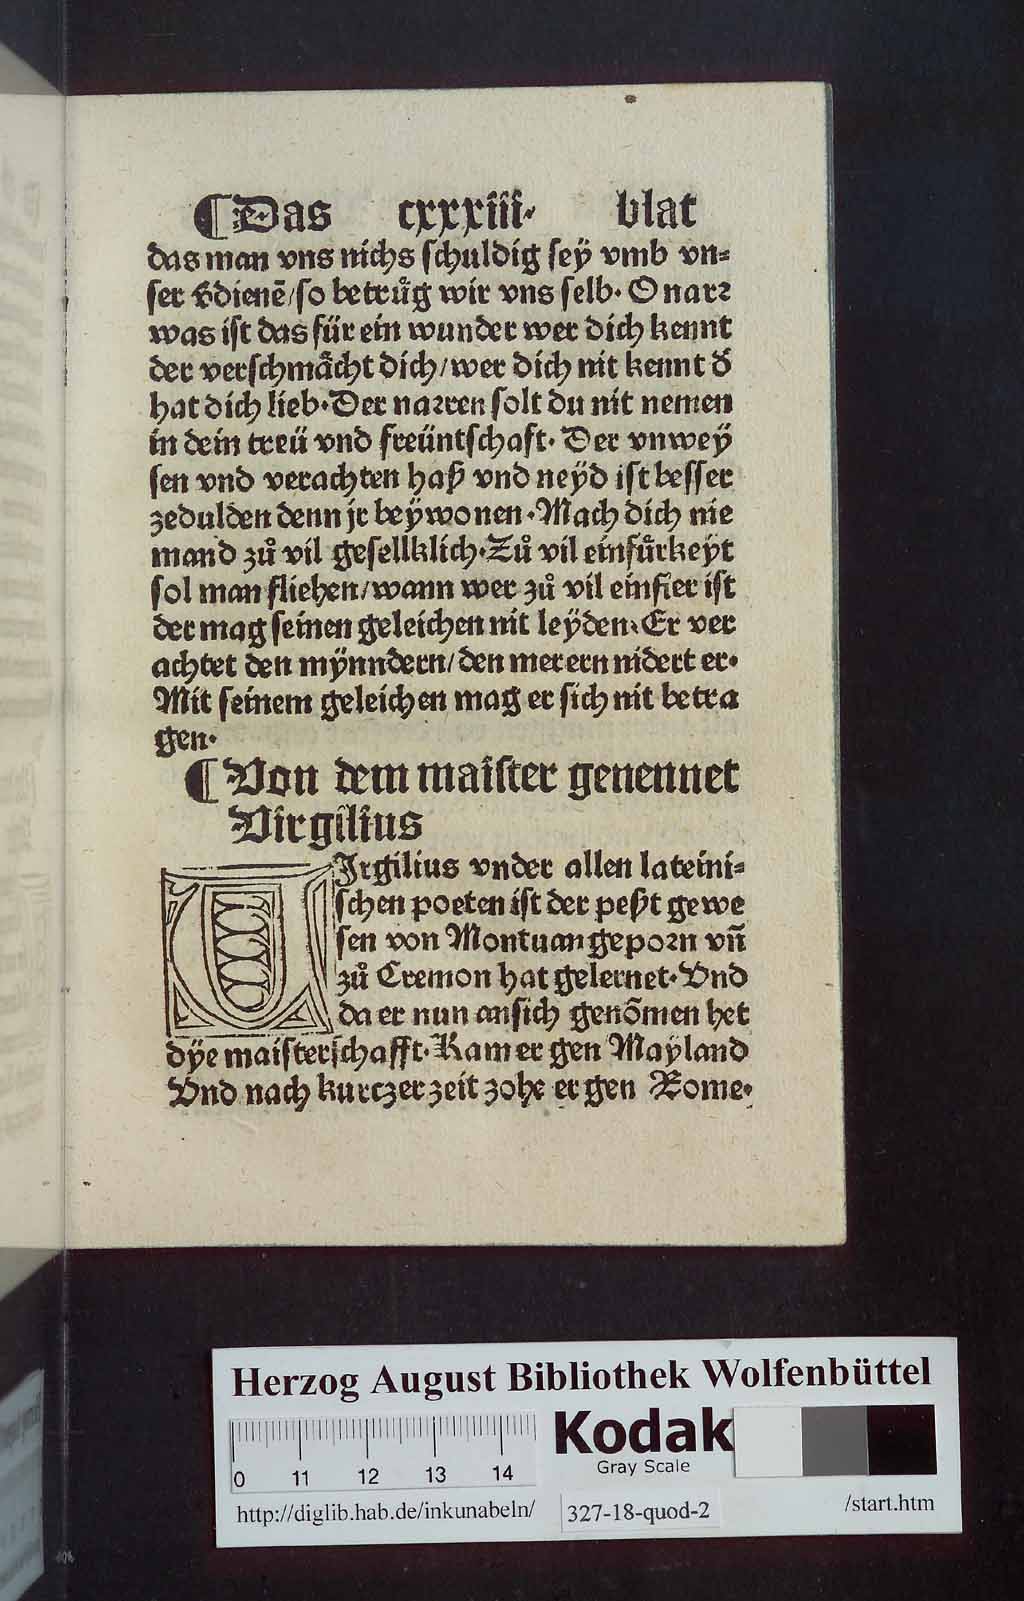 ¶Das cxxxiii· blat
das man vns nichs schuldig sey vmb vn=
ser v̄dienē/so betrůg wir vns selb· O narr
was ist das für ein wunder wer dich kennt
der verschmächt dich/wer dich nit kennt d̄
hat dich lieb·Der narren solt du nit nemen
in dein treü vnd freüntschaft· Der vnweÿ
sen vnd verachten haß vnd neÿd ist besser
zedulden denn jr beÿwonen·Mach dich nie
mand zů vil gesellklich·Zů vil einfůrkeÿt
sol man fliehen/wann wer zů vil einfier ist
der mag seinen geleichen nit leÿden·Er ver
achtet den mÿnndern/den merern nidert er·
Mit seinem geleichen mag er sich nit betra
gen·
¶Von dem maister genennet
Virgilius
VIrgilius vnder allen lateini=
schen poeten ist der peßt gewe
sen von Montuan geporn vñ
zů Cremon hat gelernet·Vnd
da er nun ansich genõmen het
dÿe maisterschafft·Kam er gen Maÿland
Vnd nach kurczer zeit zohe er gen Rome·
Herzog August Bibliothek Wolfenbüttel
0 11 12 13 14
Kodak
Gray Scale
http://diglib.hab.de/inkunabeln/ 327-18-quod-2 /start.htm